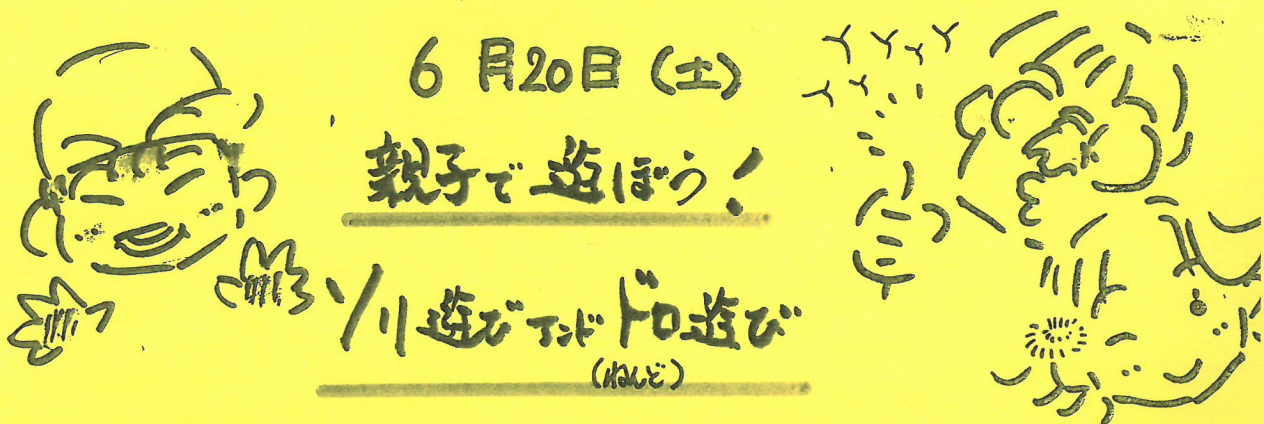 6月20日(土)
親子で遊ぼう!
ソリ遊びアンドドロ遊び
(ねんど)